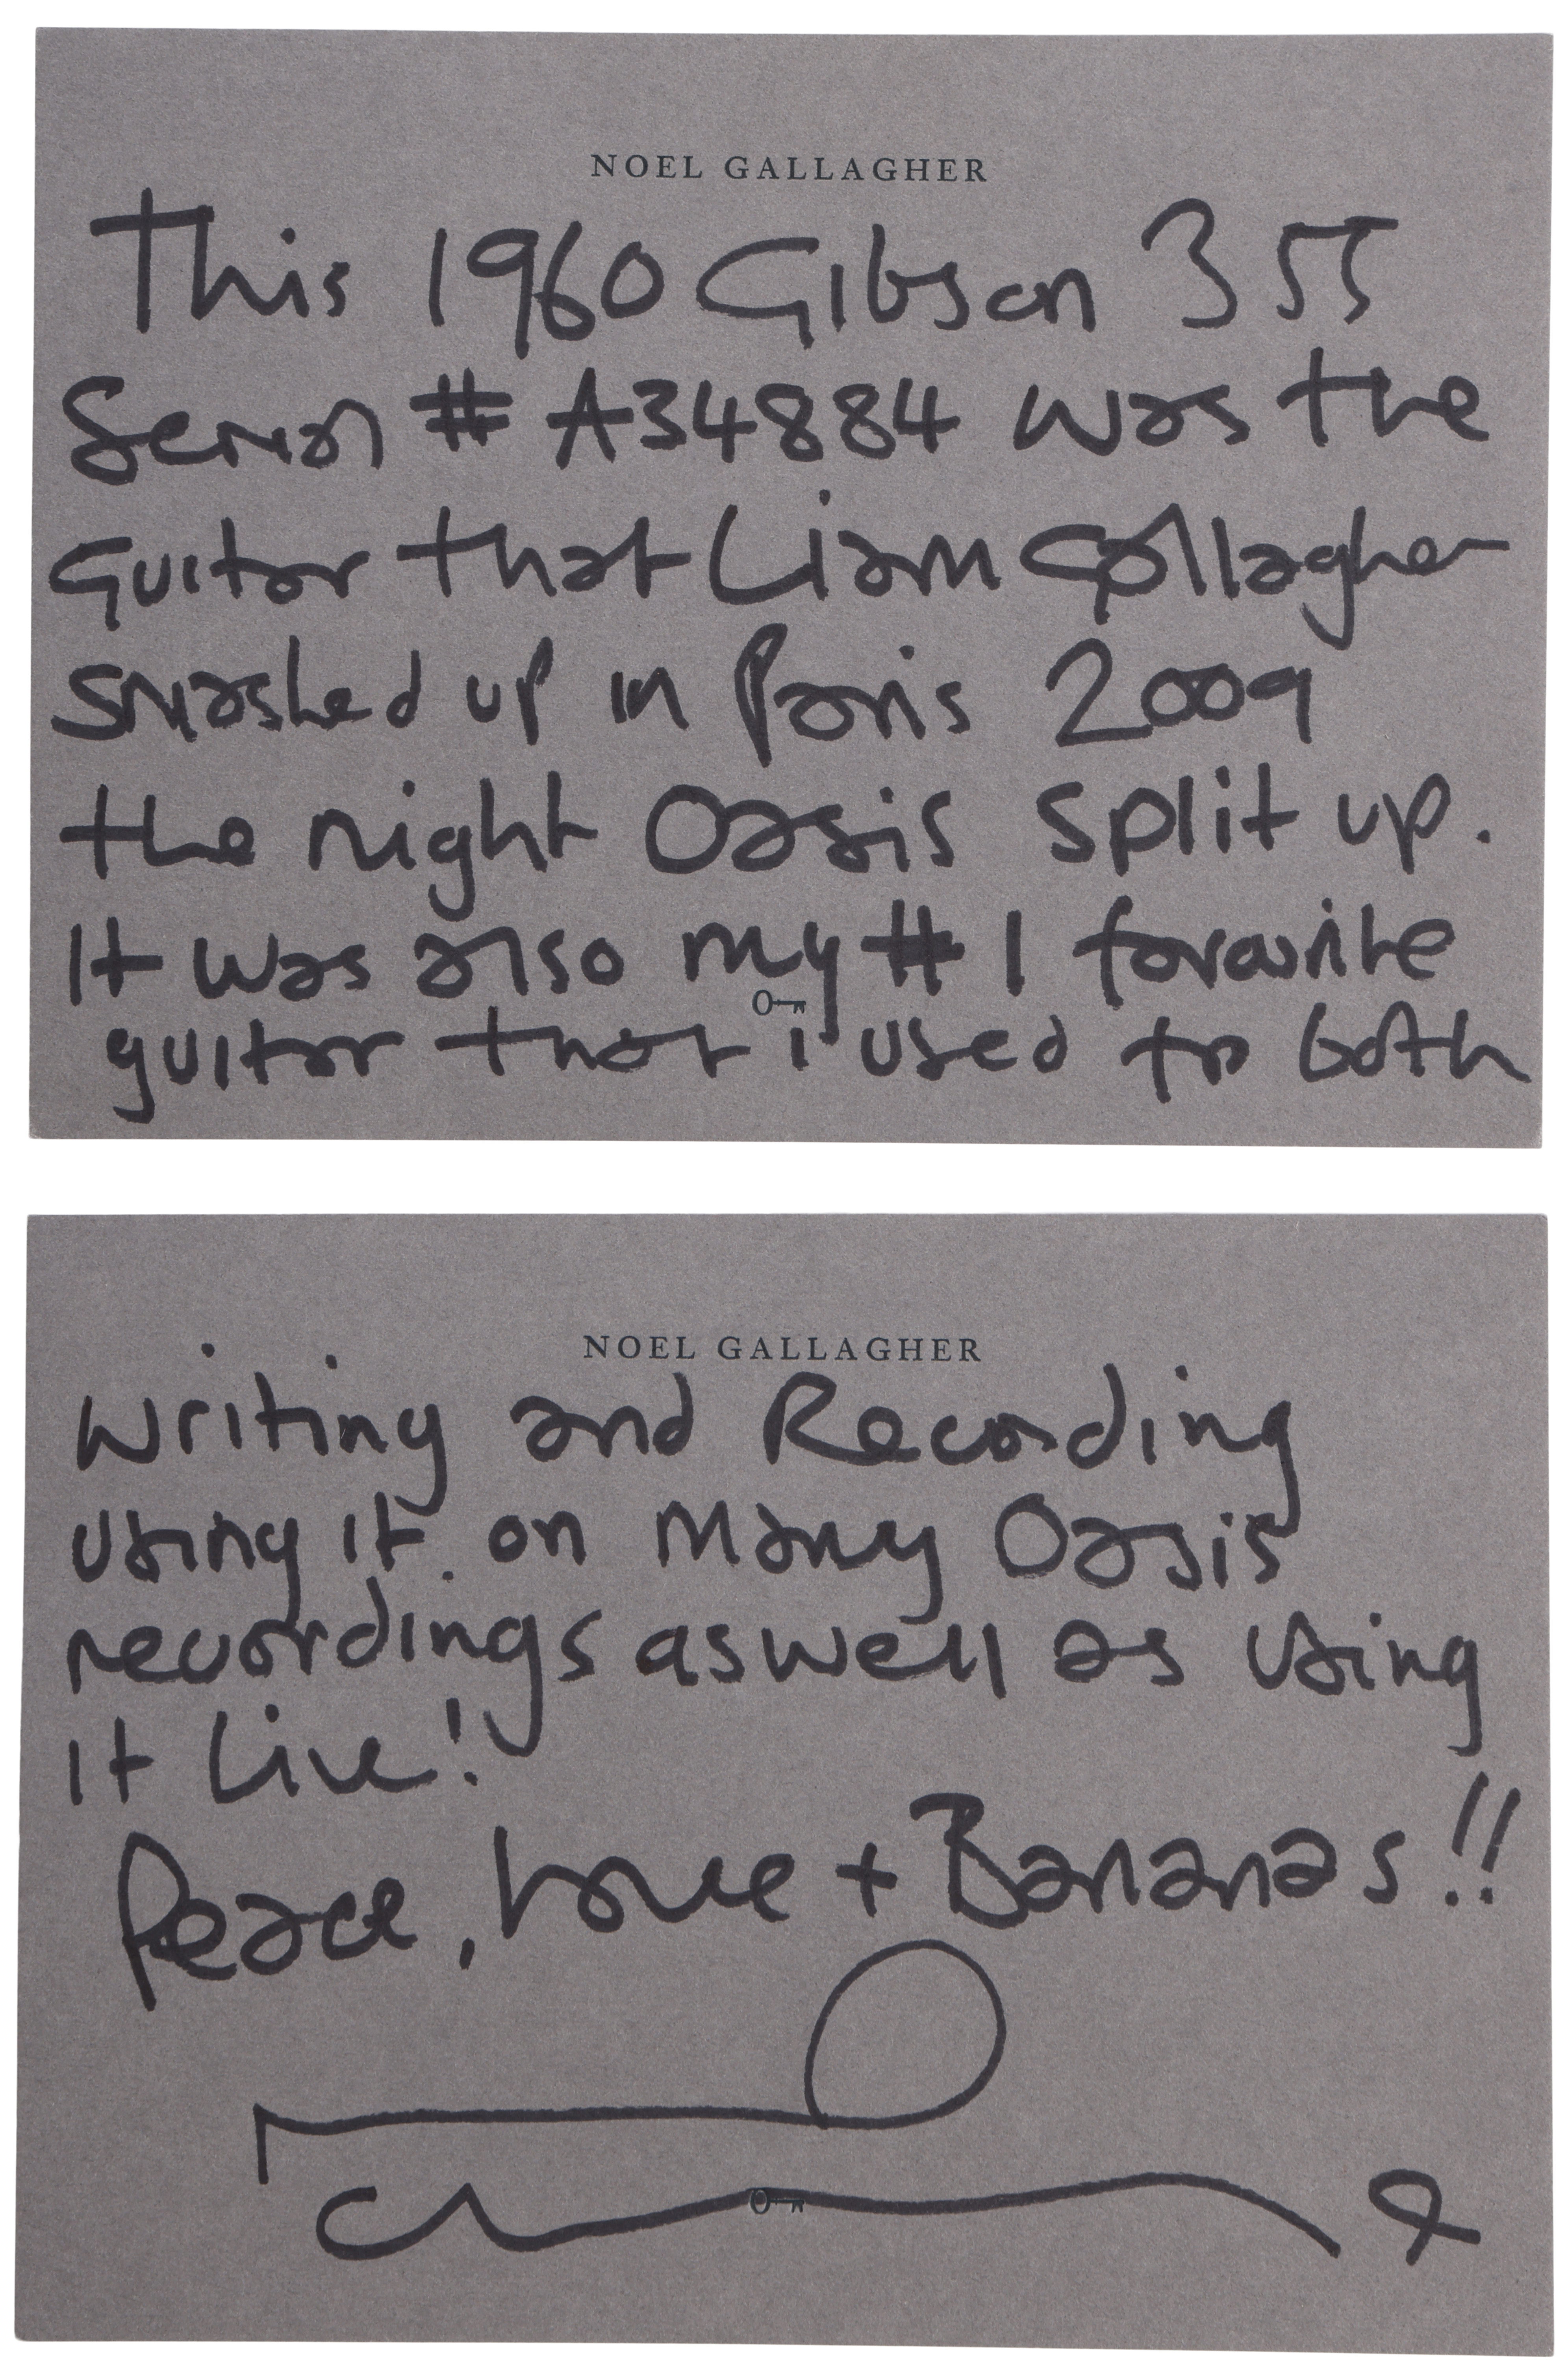 NOEL GALLAGHER
This 1960 Gibson 355
Serial # A34884 was the
Guitar that Liam Gallagher
smashed up in Paris 2009
the night Oasis split up.
It was also my # 1 favourite
guitar that i used to both
NOEL GALLAGHER
Writing and Recording
using it on many Oasis
recordings aswell as using
it Live!
Peace, Love + Bananas!!